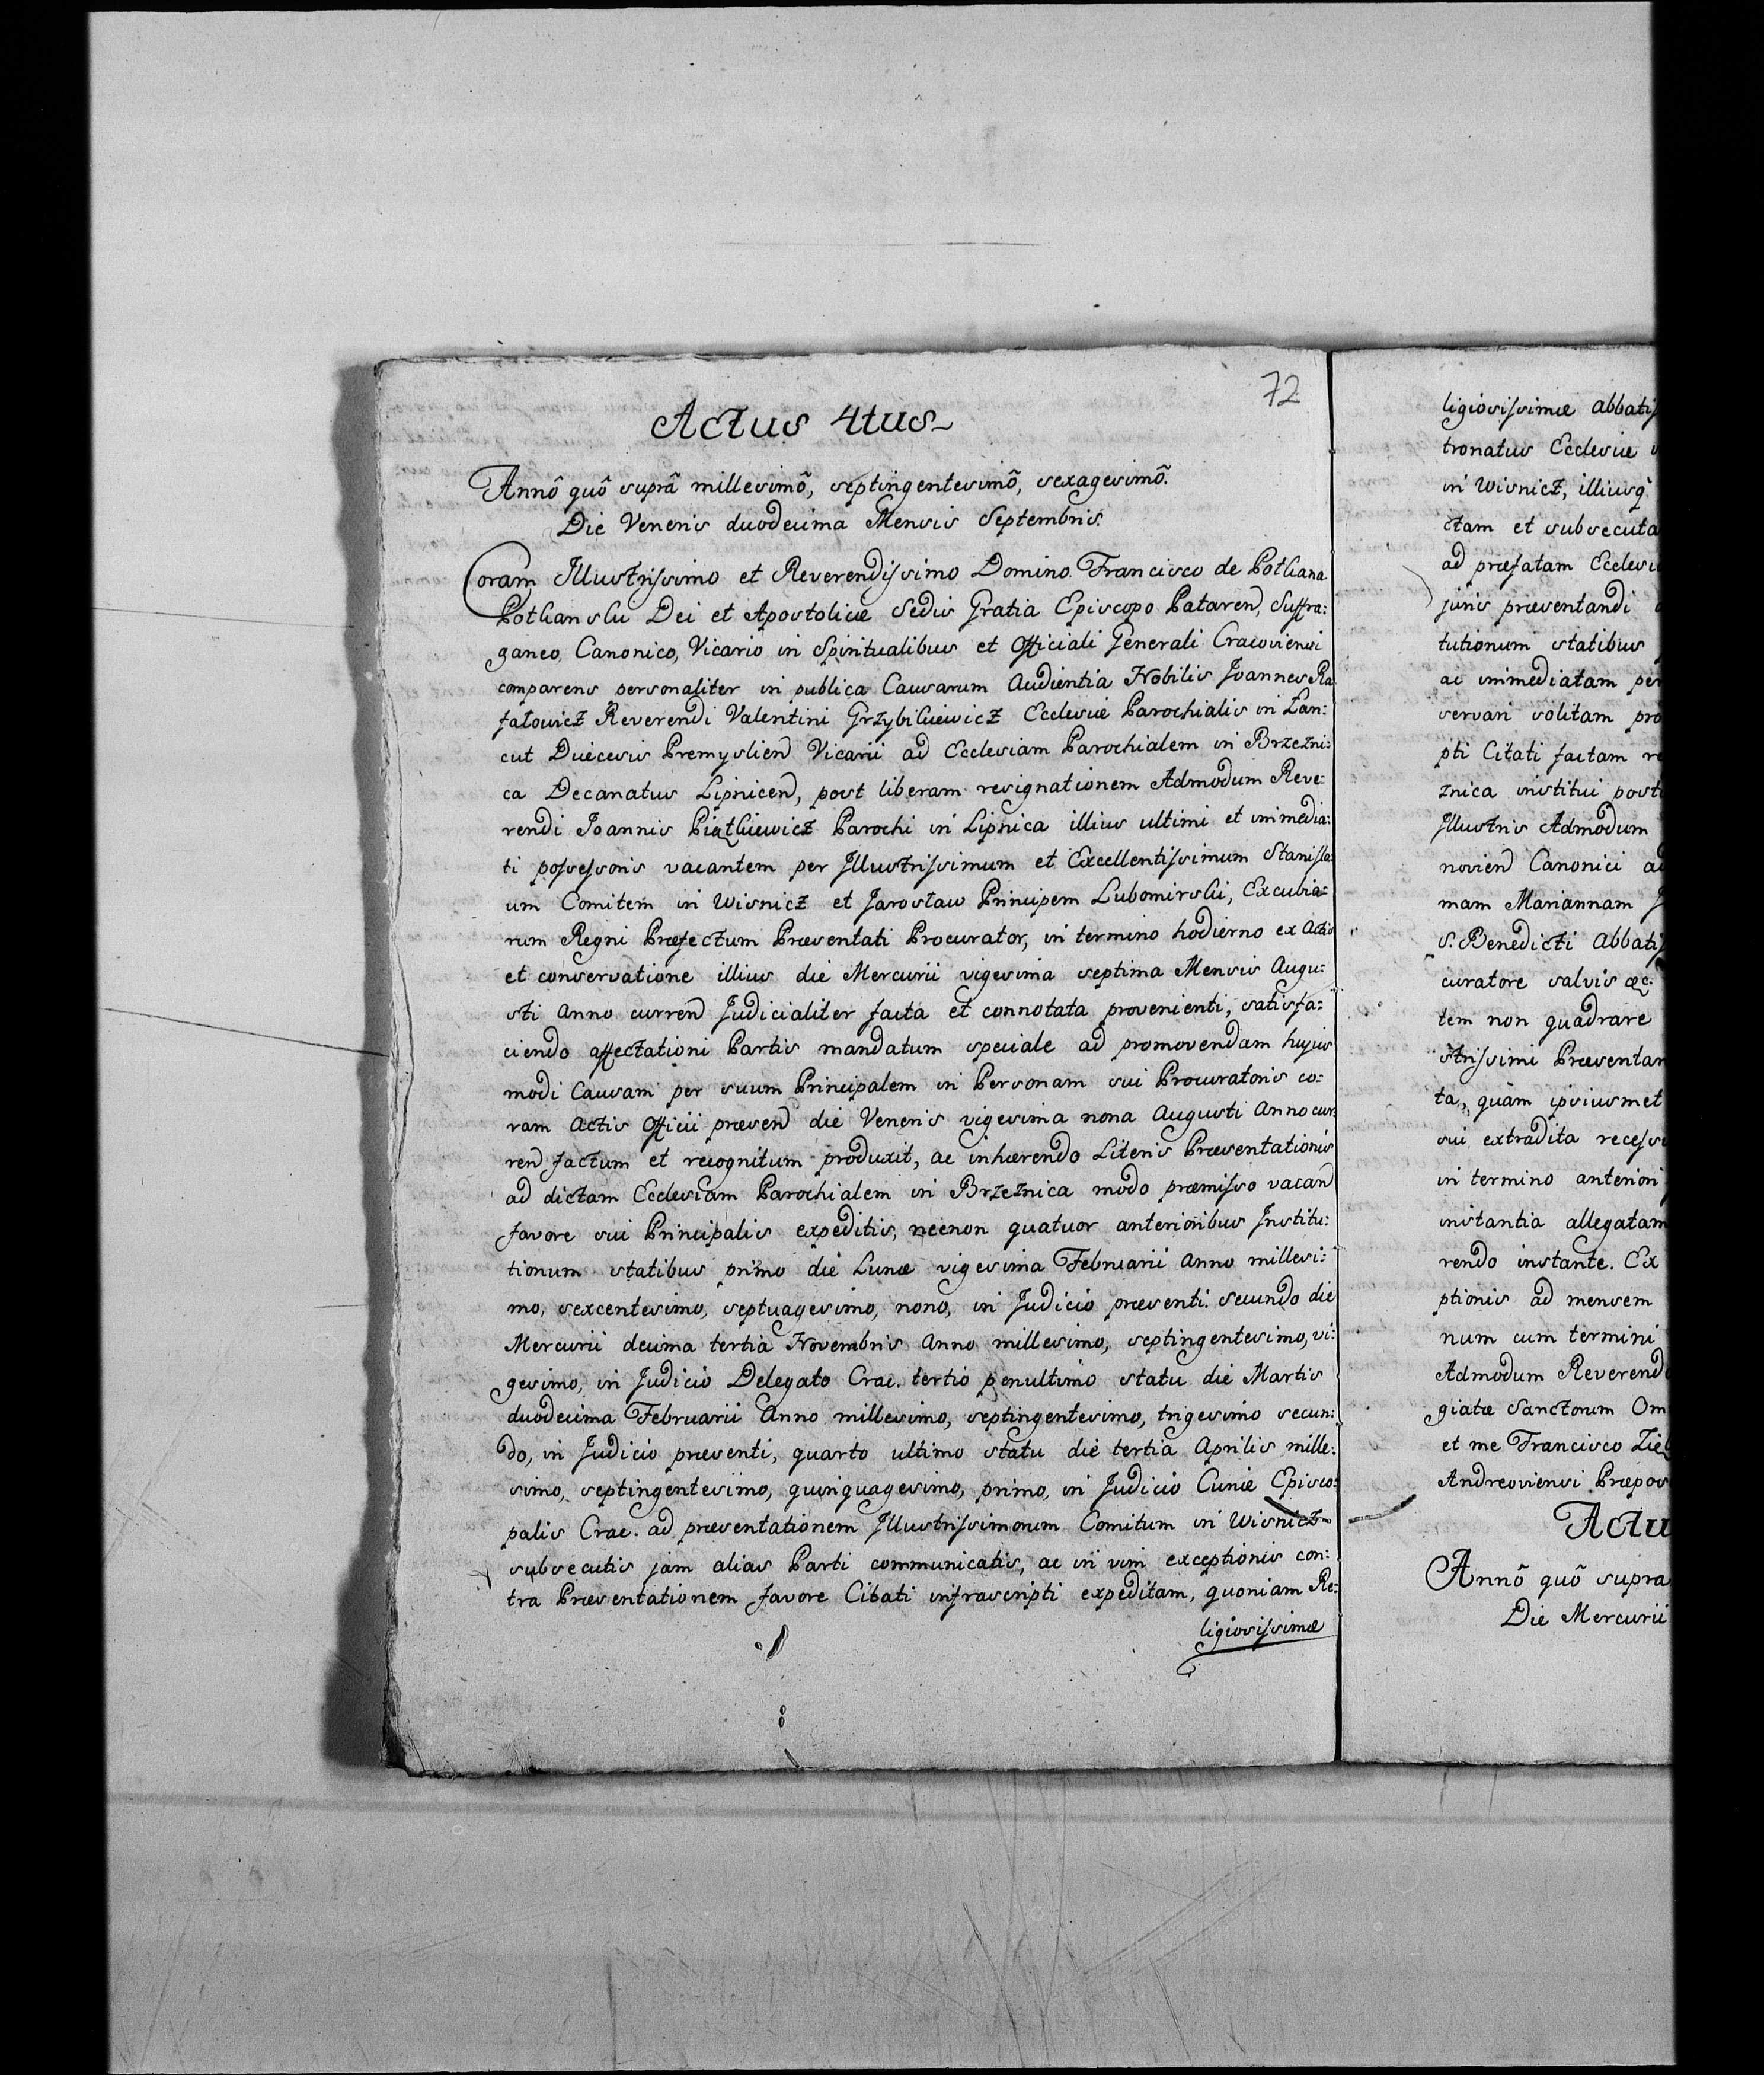 72
Actus 4tus
Annô quô suprâ millesimô, septingentesimô, sexagesimô.
Die Veneris duodecima Mensis Septembris.
Coram Illustrissimo et Reverendissimo Domino Francisco de Potkana
Potkanski Dei et Apostolicæ Sedis Gratia Episcopo Pataren, Suffra:
ganeo, Canonico, Vicario in Spiritualibus et Officiali Generali Cracoviensi
comparens personaliter in publica Causarum Audientia Nobilis Joannes Ra
fałowicz Reverendi Valentini Grzybikiewicz Ecclesiæ Parochialis in Lan:
cut Diæcesis Premyslien Vicarii ad Ecclesiam Parochialem in Brzezni:
ca Decanatus Lipnicen, post liberam resignationem Admodum Reve:
rendi Joannis Piątkiewicz Parochi in Lipnica illius ultimi et immedia:
ti possessoris vacantem per Illustrissimum et Excellentissimum Stanisla:
um Comitem in Wisnicz et Jarosław Principem Lubomirski, Excubia:
rum Regni Præfectum Præsentati Procurator, in termino hodierno ex Actis
et conservatione illius die Mercurii vigesima septima Mensis Augu:
sti Anno curren Judicialiter facta et connotata provenienti, satisfa:
ciendo affectationi Partis mandatum speciale ad promovendam hujus
modi Causam per suum Principalem in Personam sui Procuratoris co:
ram Actis Officii præsen die Veneris vigesima nona Augusti Anno cur
ren factum et recognitum produxit, ac inhærendo Literis Præsentationis
ad dictam Ecclesiam Parochialem in Brzeznica modo præmisso vacan
favore sui Principalis expeditis, necnon quatuor anterioribus Institu:
tionum statibus primo die Lunæ vigesima Februarii Anno millesi:
mo, sexcentesimo, septuagesimo, nono, in Judicio præsenti. secundo die
Mercurii decima tertia Novembris Anno millesimo, septingentesimo, vi:
gesimo, in Judicio Delegato Crac. tertio penultimo statu die Martis
duodecima Februarii Anno millesimo, septingentesimo, trigesimo secun:
do, in Judicio præsenti, quarto ultimo statu die tertia Aprilis mille:
simo, septingentesimo, quinquagesimo, primo, in Judicio Curiæ Episco:
palis Crac. ad præsentationem Illustrissimorum Comitum in Wisnicz
subsecutis jam alias Parti communicatis, ac in vim exceptionis con:
tra Præsentationem favore Citati infrascripti expeditam, quoniam Re:
ligiosissimæ
ligiosissimæ Abbatis
tronatus Ecclesiæ
in Wisnicz, illiusq
ctam et subsecuta
ad præfatam Ecclesi
juris præsentandi
tutionum statibus
ac immediatam per
servari solitam pro
pti Citati factam re
znica institui post
Illustris Admodum
novien Canonici ad
mam Mariannam J
S. Benedicti Abbatis
curatore salvis &c.
tem non quadrare
strissimi Præsentan
ta, quàm ipsiusmet
sui extradita recess
in termino anteriori
instantia allegatam
rendo instante. Ex
ptionis ad mensem
num cum termini
Admodum Reverend
giatæ Sanctorum Om
et me Francisco Zię
Andreoviensi Præpos
Actu
Annô quô supra
Die Mercurii